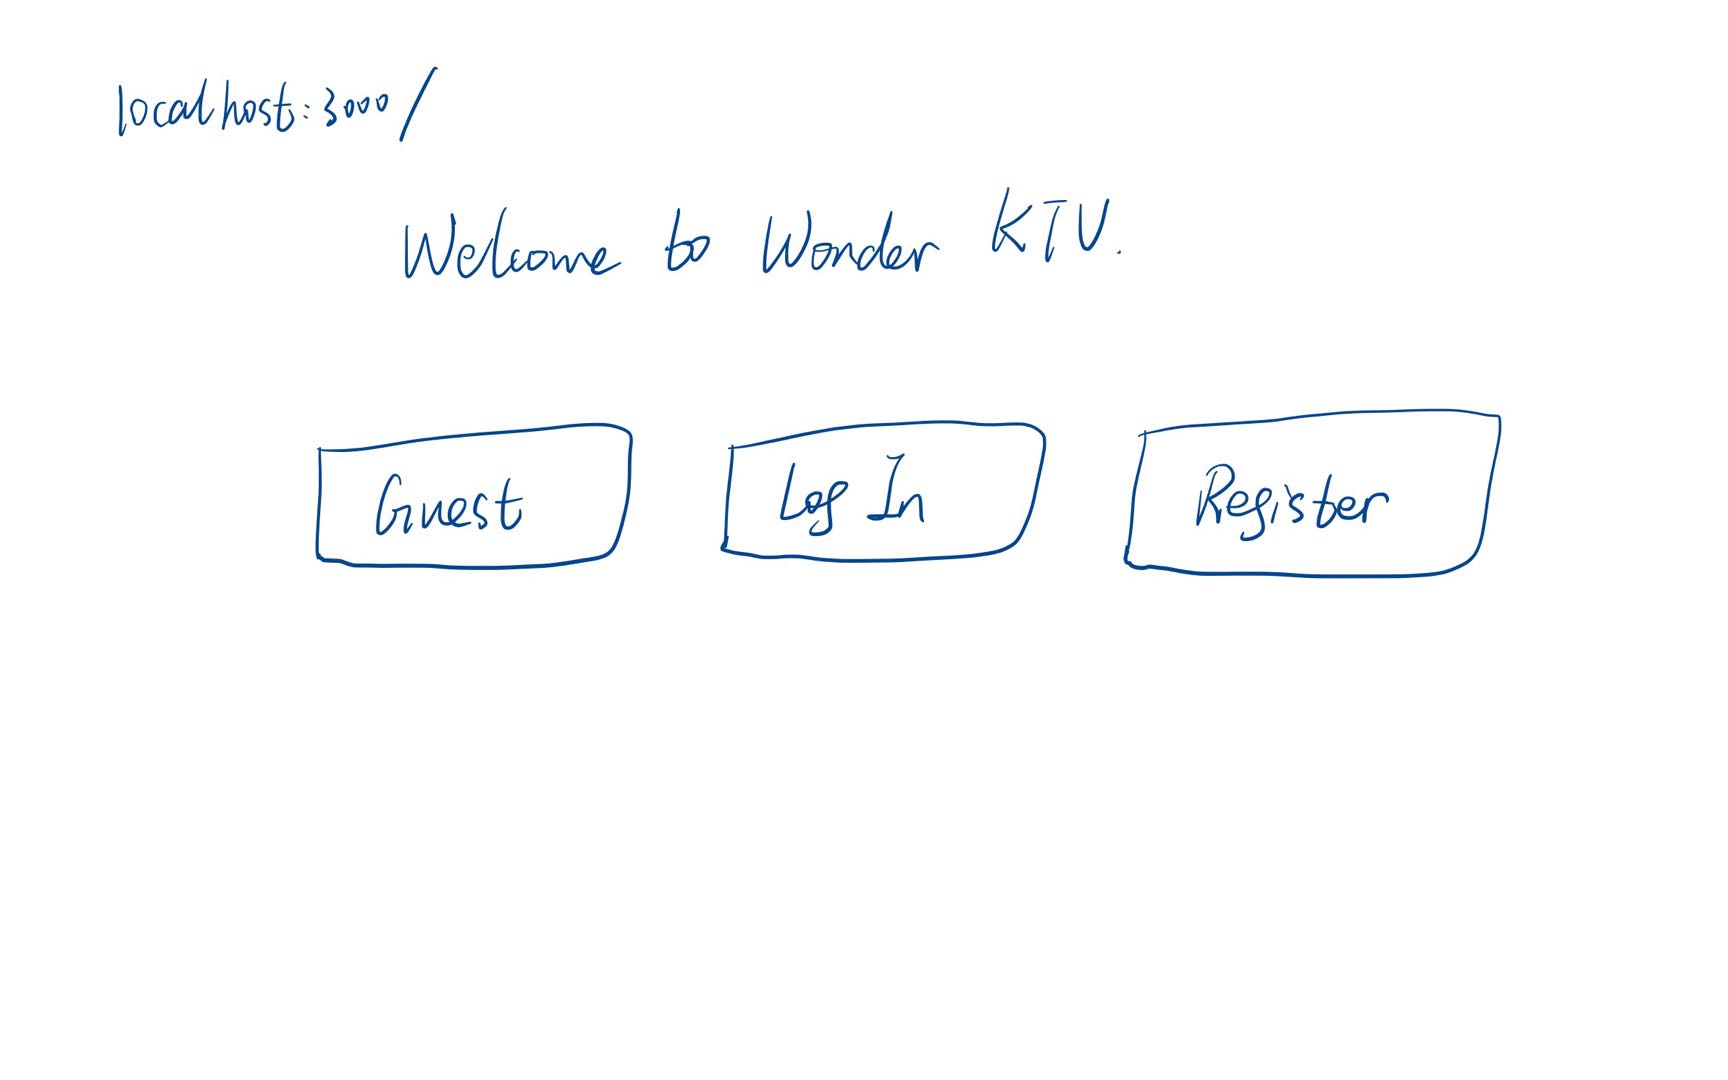 localhost:3000/
Welcome to Wonder KTV.
Guest
Log In
Register